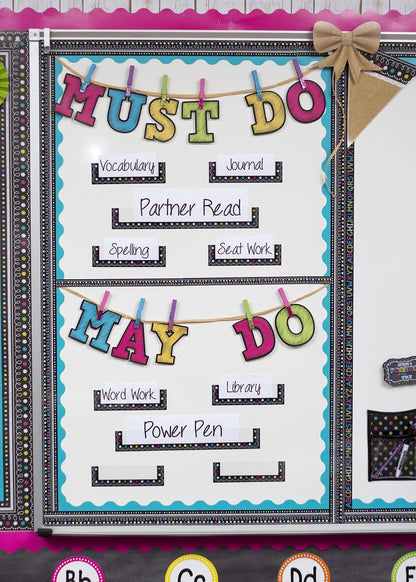 MUST DO
Vocabulary Journal
Partner Read
Spelling Seat Work
MAY DO
Word Work Library
Power Pen
Bb Cc Dd